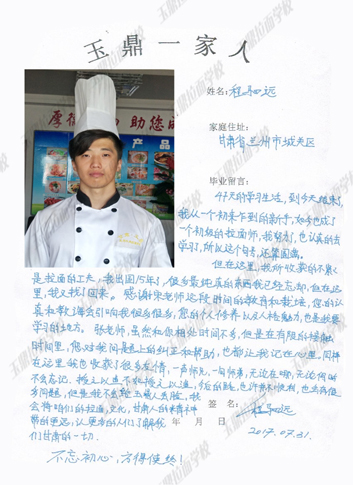 玉鼎一家人
姓名:程
远
厚德
助您
产品
家庭住址:
甘肃省兰州市城关区
毕业留言:
47天的学习生活,到今天结束了,
我从一个初来乍到的新手,如今也成了
一个初级的拉面师,我努力,也认真的去
学习了,所以这个
还算圆满。
但在这里,我所收获的不
是拉面的工夫,我出国15年了,很多最纯真的东西我已经忘却,但在这
里,我又找了回来。感谢
老师这段时间的教育和栽培,您的认
真和教诲会影响我很多很多,您的个人修养以及人格魅力,也是我要
学习的地方。张老师,虽然和您相处时间不多,但是在有限的接触
时间里,您对我问题上的纠正和帮助,也都让我记在心里,同样
在这里我也收获了很多友情,一声师兄,一句师弟,无论在哪,无论何时
不会忘记。授之以鱼不如授之以渔,
的路,也许并不顺利,也会有很
多问题,但是我不会给玉鼎人丢脸,我
会将咱们的拉面文化,甘肃人的
带的更远,让更多的人们了解我
们甘肃的一切。
签名:
程
远
年 月 日
2017.07.31.
不忘初心,方得使终!
玉鼎拉面学校